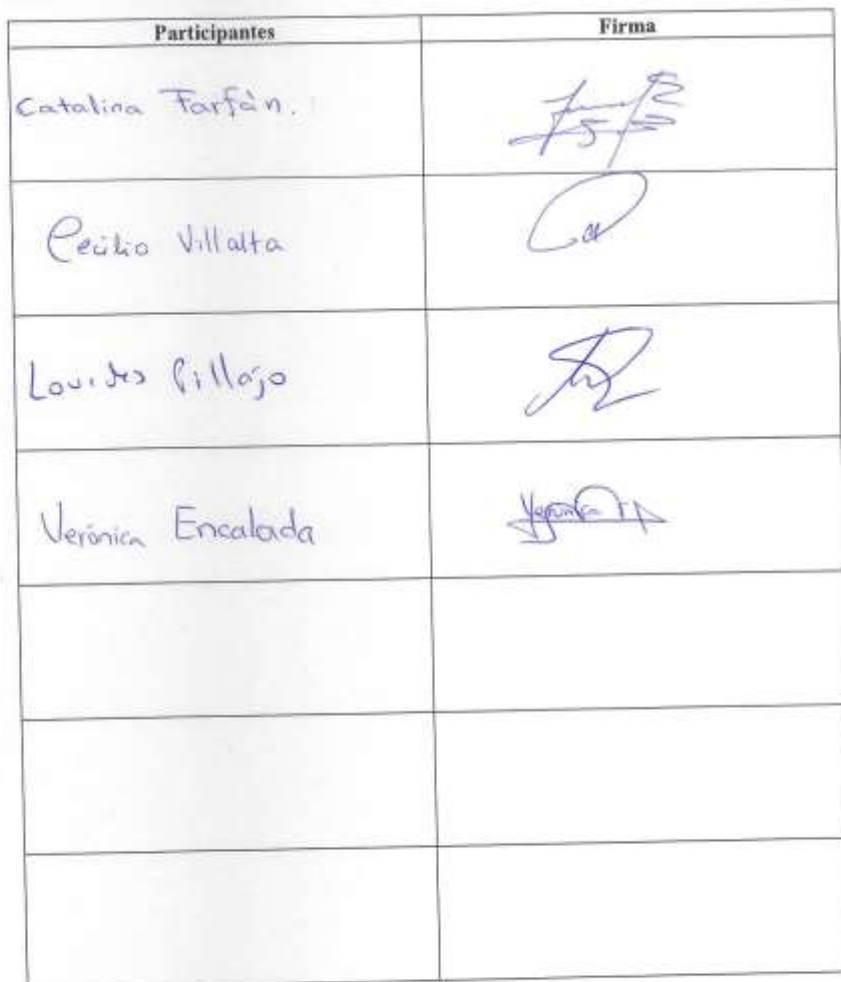 Participantes Firma
Catalina Farfán.
Cecilia Villalta
Lourdes Pillajo
Verónica Encalada Verónica